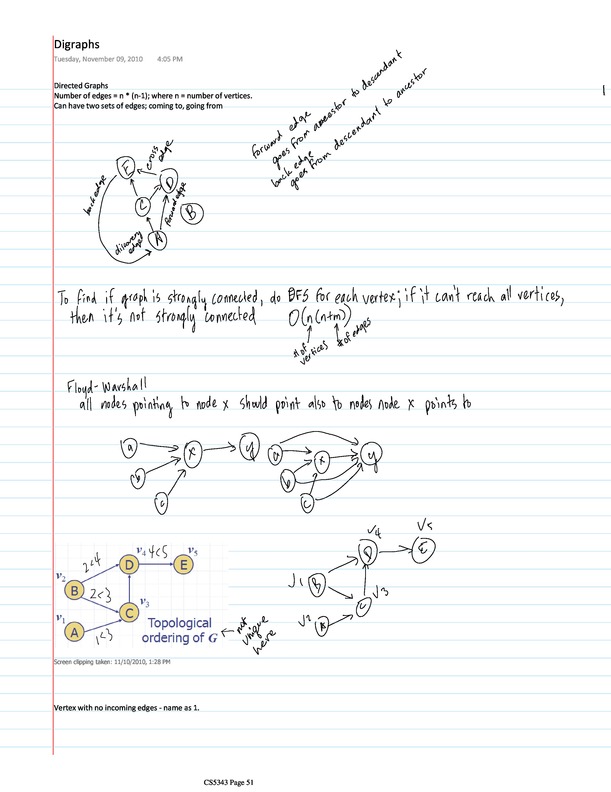 Digraphs
Tuesday, November 09, 2010 4:05 PM
Directed Graphs
Number of edges = n * (n-1); where n = number of vertices.
Can have two sets of edges; coming to, going from
1
forward edge
goes from ancestor to descendant
back edge
goes from descendant to ancestor
E
cross edge
back edge
D
C
forward edge
B
discovery edges
A
To find if graph is strongly connected, do DFS for each vertex; if it can't reach all vertices,
then it's not strongly connected O(n(n+m))
# of vertices
# of edges
Floyd-Warshall
all nodes pointing to node x should point also to nodes node x points to
a x y
b
c
a x y
b
c
v4 4<5 v5
2<4 D E
v2
B 2<3
v3
v1 C
A 1<3
Topological
ordering of G
not unique here
v4 v5
D E
v1 B
v3
C
v2 A
Screen clipping taken: 11/10/2010, 1:28 PM
Vertex with no incoming edges - name as 1.
CS5343 Page 51